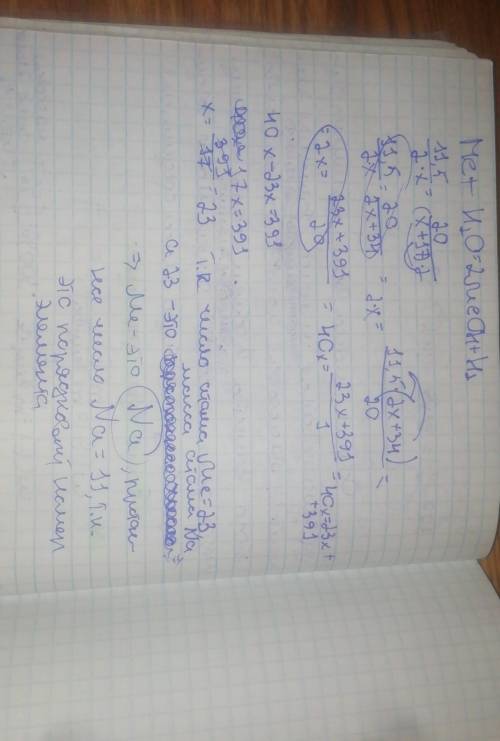 Me + H₂O = 2MeOH + H₂
11,5/2·x = 20/(x+17)2
11,5/2x = 20/2x+34 = 2x = 11,5(2x+34)/20 =
= 2x = 23x+391/20 = 40x = 23x+391/1 = 40x=23x+
+391
40x-23x=391
17x=391
x = 391/17 = 23
Т.к число атома Me=23
а 23 - это масса атома Na
=> Me - это Na, протон-
ное число Na = 11, т.к.
это порядковый номер
элемента